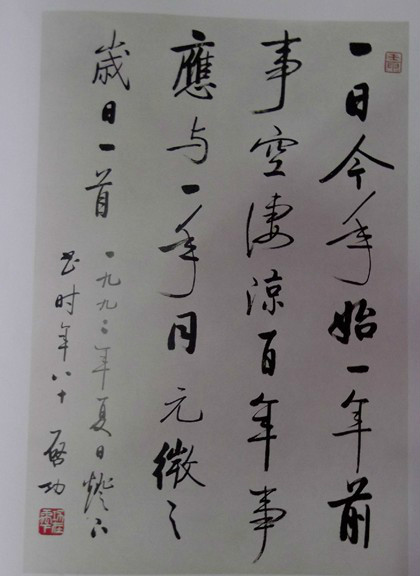 一日今年始一年前
事空淒涼百年事
應与一年同元微之
歲日一首
一九九二年夏日燈下
書时年八十 启功